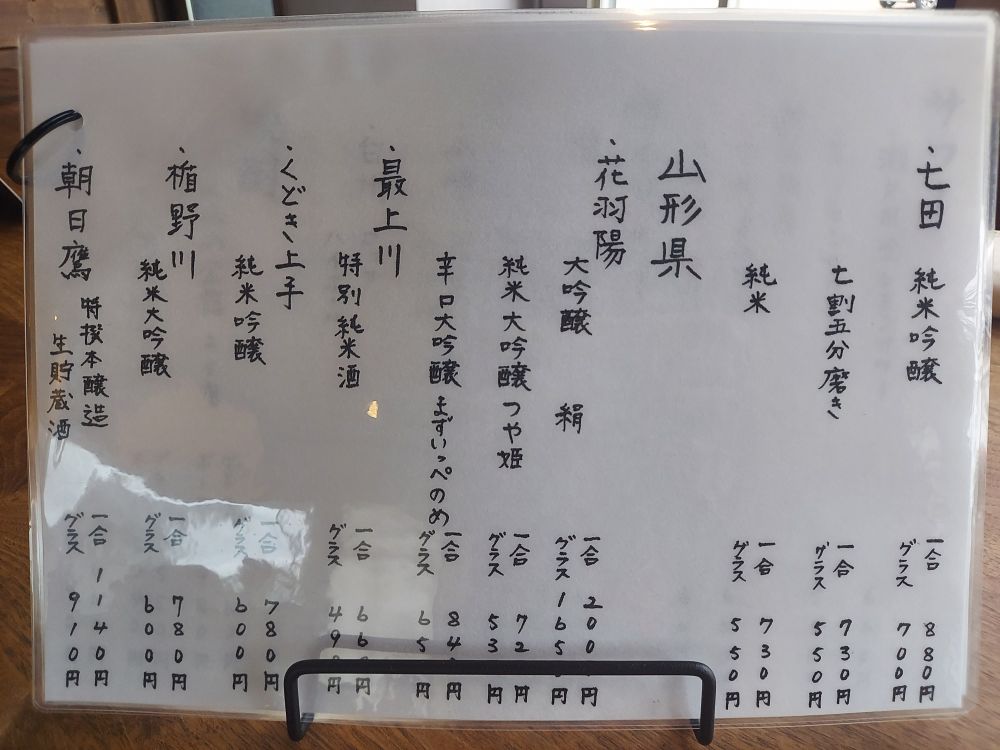 ・七田
純米吟醸
一合 880円
グラス 700円
七割五分磨き
一合 730円
グラス 550円
純米
一合 730円
グラス 550円
山形県
・花羽陽
大吟醸 絹
一合
グラス
純米大吟醸 つや姫
一合
グラス
辛口大吟醸 まずいっぺのめ
一合
グラス
・最上川
特別純米酒
一合
グラス
・くどき上手
純米吟醸
一合 780円
グラス 600円
・楯野川
純米大吟醸
一合 780円
グラス 600円
・朝日鷹
特撰本醸造
生貯蔵酒
一合 1140円
グラス 910円